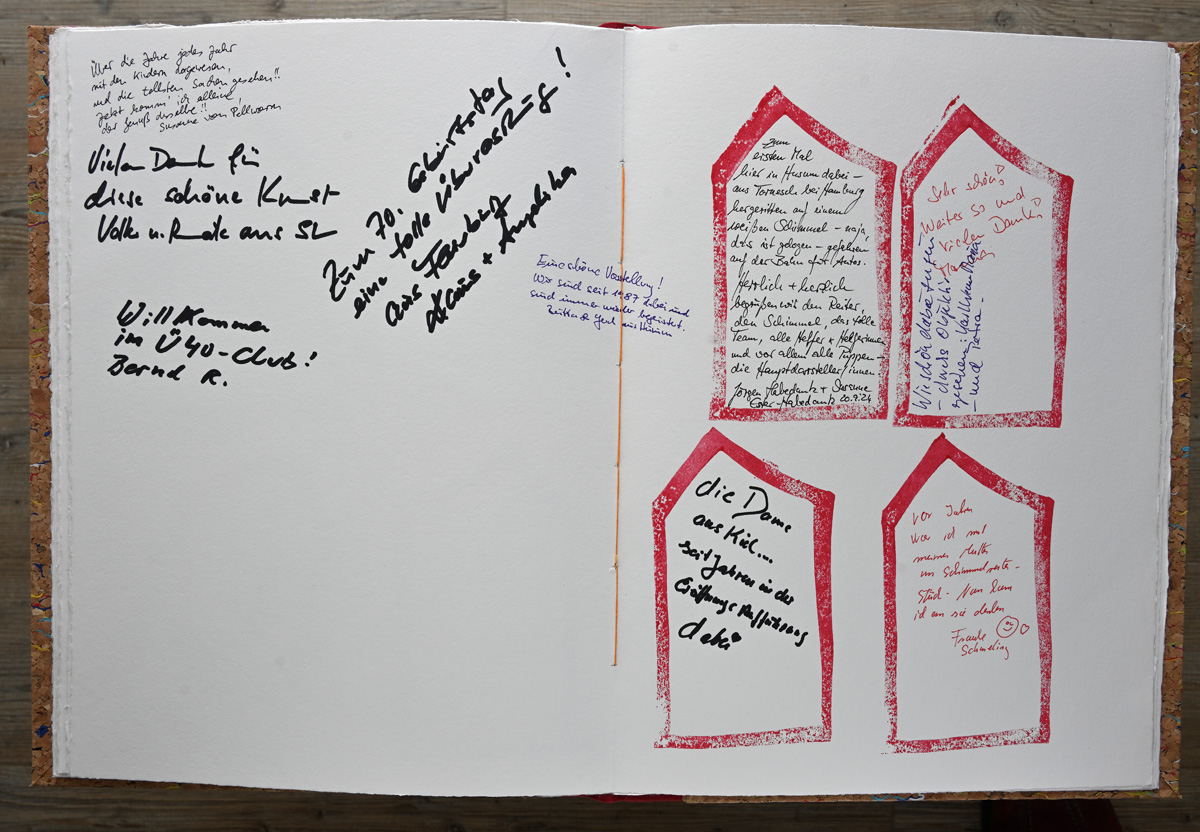 Über die Jahre jedes Jahr
mit den Kindern dagewesen,
und die tollsten Sachen gesehen!!
Jetzt komm' ich alleine,
der Genuß derselbe!!
Susanne von Pellworm
Vielen Dank für
diese schöne Kunst
Volker u. Renate aus SL
Zum 70. Geburtstag
eine tolle Überraschung!
aus
Klaus + Angelika
Willkommen
im Ü40-Club!
Bernd R.
Eine schöne Vorstellung!
Wir sind seit 1987 dabei und
sind immer wieder begeistert.
aus Husum
Zum
ersten Mal
hier in Husum dabei –
aus Tornesch bei Hamburg
hergeritten auf einem
weißen Schimmel – naja,
das ist gelogen – gefahren
auf der Bahn für Autos.
Herrlich + herzlich
begrüßen wir den Reiter,
den Schimmel, das tolle
Team, alle Helfer + Helferinnen
und vor allem alle Puppen –
die Hauptdarsteller/innen
Jörgen Habedank + Susanne
Ester-Habedank 20.9.24
Sehr schön!
Weiter so und
vielen Dank!
Wie schön dabei zu sein
– durchs Objektiv
gesehen:
– und Petra –
die Dame
aus Kiel...
seit Jahren in der
Eröffnungs Aufführung
dabei
Vor Jahren
war ich mit
meiner Mutter
im Schimmelreiter-
Stück. Nun kann
ich an sie denken
Frauke
Schmeling